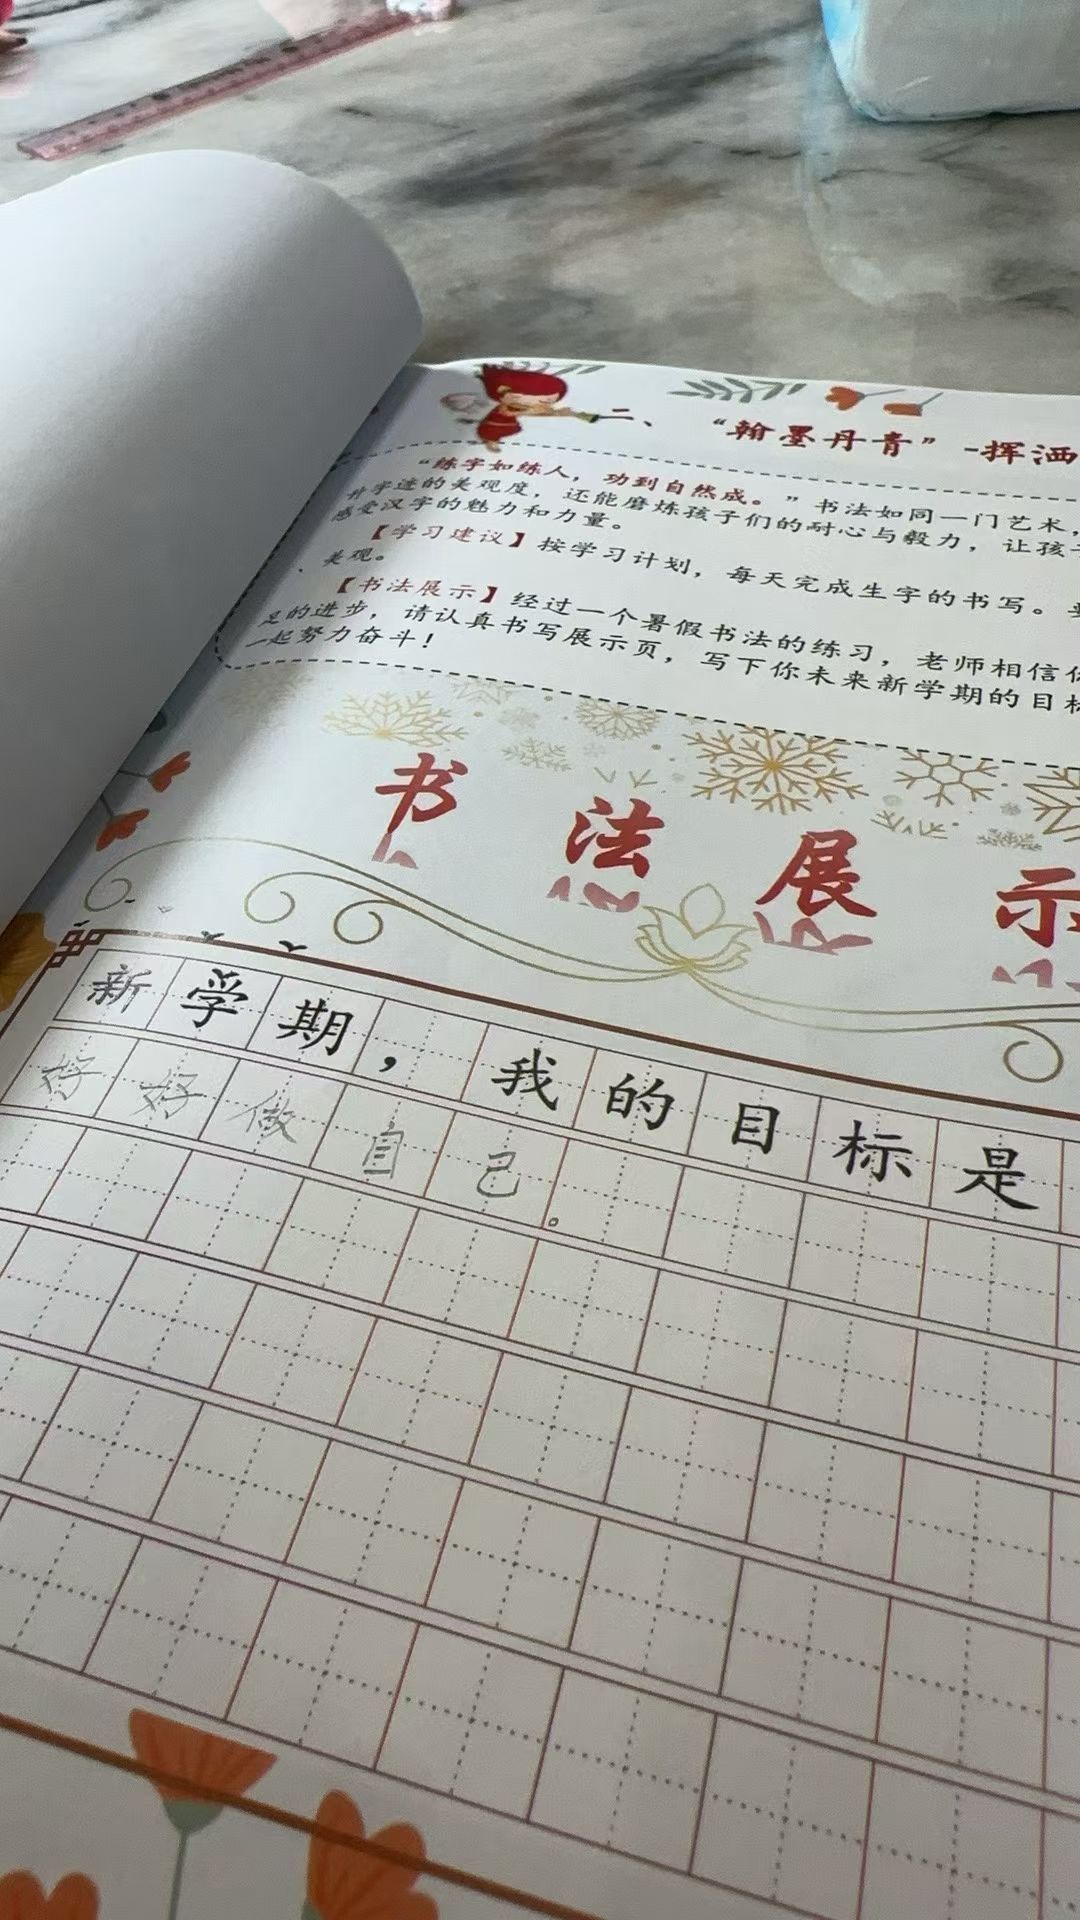 二、“翰墨丹青”-挥洒
“练字如练人，功到自然成。”书法如同一门艺术，
升字迹的美观度，还能磨炼孩子们的耐心与毅力，让孩子
感受汉字的魅力和力量。
【学习建议】按学习计划，每天完成生字的书写。
、美观。
【书法展示】经过一个暑假书法的练习，老师相信你
足的进步，请认真书写展示页，写下你未来新学期的目标
一起努力奋斗！
书法展示
新学期，我的目标是
好好做自己。